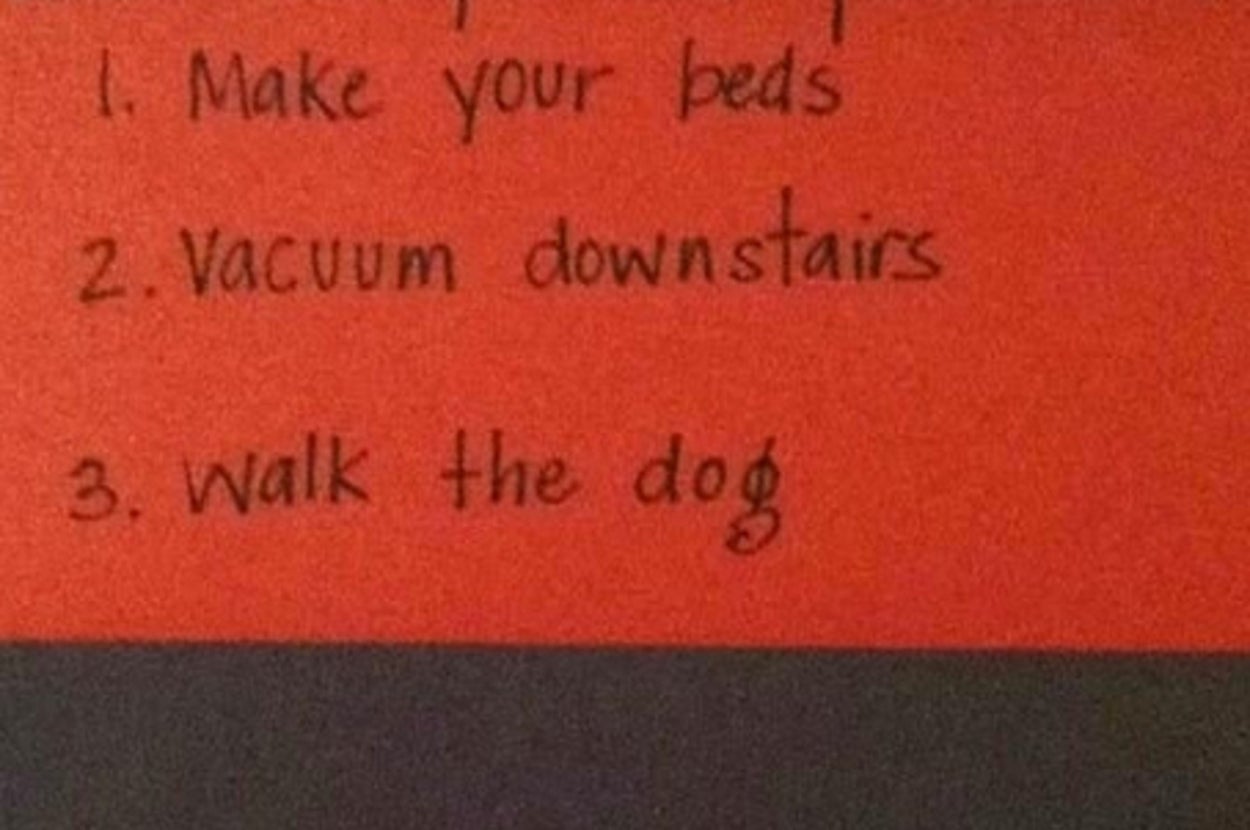 1. Make your beds
2. Vacuum downstairs
3. Walk the dog